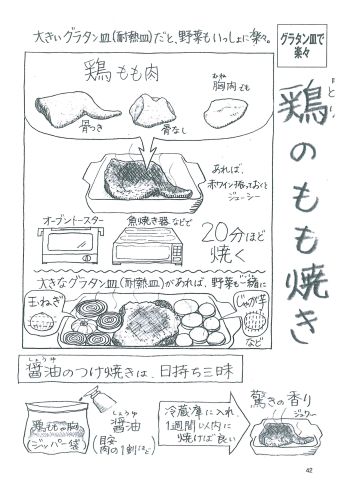 大きいグラタン皿(耐熱皿)だと、野菜もいっしょに楽々。
グラタン皿で
楽々
とり
鶏のもも焼き
鶏もも肉
骨つき
骨なし
むね
胸肉も
あれば、
赤ワイン振っておくと
ジューシー
オーブントースター
魚焼き器などで
20分ほど
焼く
大きなグラタン皿(耐熱皿)があれば、野菜も一緒に
玉ねぎ
じゃが芋
など
しょうゆ
醤油のつけ焼きは、日持ち三昧
鶏ももor胸
(ジッパー袋)
しょうゆ
醤油
(目安
肉の1割ほど)
冷蔵庫に入れ
1週間以内に
焼けば良い
驚きの香り
ジュワー
42